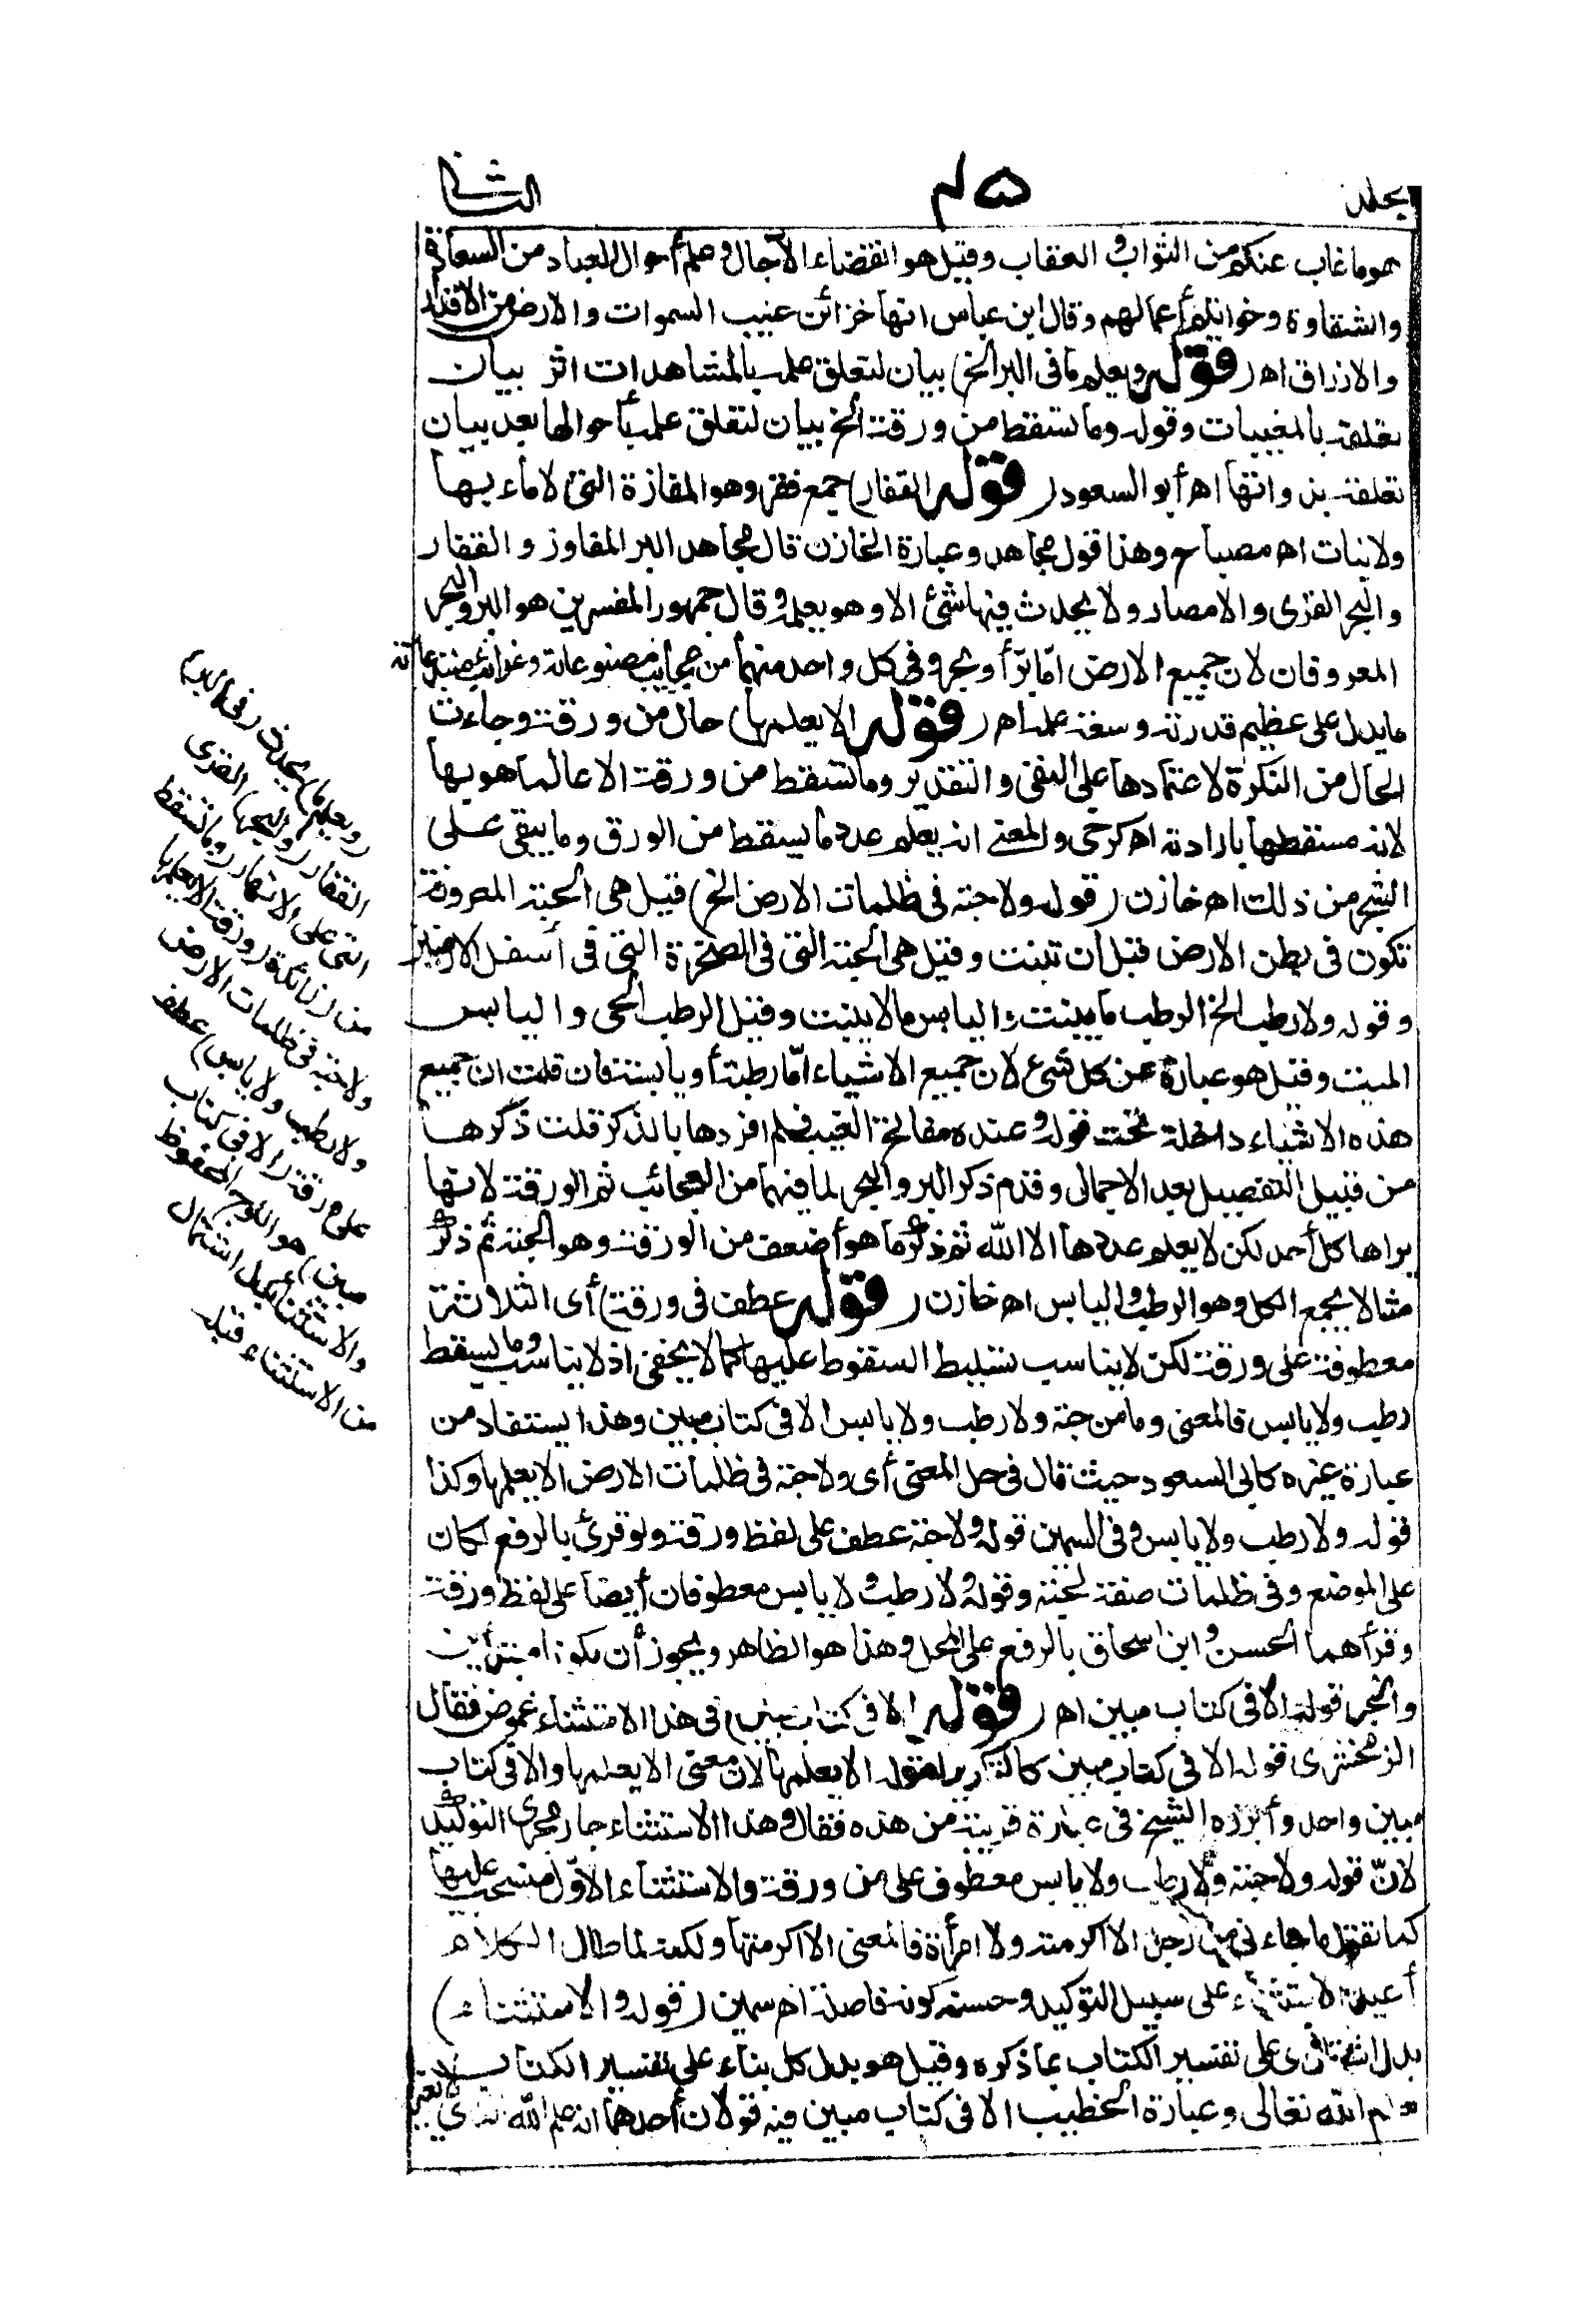 مجلد
٤٥
الثانى
هو ما غاب عنكم من الثواب والعقاب وقيل هو انقضاء الآجال وعلم أحوال العباد من السعادة
والشقاوة وخواتيم أعمالهم وقال ابن عباس انها خزائن غيب السموات والارض من الاقدار
والارزاق اه (قوله ويعلم ما فى البر الخ) بيان لتعلق علمه بالمشاهدات اثر بيان
تعلقه بالمغيبات وقوله وما تسقط من ورقة الخ بيان لتعلق علمه بأحوالها بعد بيان
تعلقه بذواتها اه أبو السعود (قوله القفار) جمع قفر وهو المفازة التى لا ماء بها
ولا نبات اه مصباح وهذا قول مجاهد وعبارة الخازن قال مجاهد البر المفاوز والقفار
والبحر القرى والامصار ولا يحدث فيها شئ الا وهو يعلمه وقال جمهور المفسرين هو البر والبحر
المعروفان لان جميع الارض امّا برّ أو بحر وفى كل واحد منهما من عجائب مصنوعاته وغرائب مبتدعاته
ما يدل على عظيم قدرته وسعة علمه اه (قوله الا يعلمها) حال من ورقة وجاءت
الحال من النكرة لاعتمادها على النفى والتقدير وما تسقط من ورقة الا عالما هو بها
لانه مسقطها بارادته اه كرخى والمعنى انه يعلم عدد ما يسقط من الورق وما يبقى على
الشجر من ذلك اه خازن (قوله ولا حبة فى ظلمات الارض الخ) قيل هى الحبة المعروفة
تكون فى بطن الارض قبل أن تنبت وقيل هى الحبة التى فى الصخرة التى فى أسفل الارضين
وقوله ولا رطب الخ الرطب ما ينبت واليابس ما لا ينبت وقيل الرطب الحى واليابس
الميت وقيل هو عبارة عن كل شئ لان جميع الاشياء امّا رطبة أو يابسة فان قلت ان جميع
هذه الاشياء داخلة تحت قوله وعنده مفاتح الغيب فلم افردها بالذكر قلت ذكرها
من قبيل التفصيل بعد الاجمالى وقدم ذكر البر والبحر لما فيهما من العجائب ثم الورقة لانها
يراها كل أحد لكن لا يعلم عددها الا الله ثم ذكر ما هو أضعف من الورقة وهو الحبة ثم ذكر
مثالا يجمع الكل وهو الرطب واليابس اه خازن (قوله عطف فى ورقة) أى الثلاثة
معطوفة على ورقة لكن لا يناسب تسليط السقوط عليها كما لا يخفى اذ لا يناسب وما يسقط
رطب ولا يابس فالمعنى وما من حبة ولا رطب ولا يابس الا فى كتاب مبين وهذا يستفاد من
عبارة غيره كابى السعود حيث قال فى حل المعنى أى ولا حبة فى ظلمات الارض الا يعلمها وكذا
قوله ولا رطب ولا يابس وفى السمين قوله ولا حبة عطف على لفظ ورقة ولو قرئ بالرفع لكان
على الموضع وفى ظلمات صفة لحبة وقوله ولا رطب ولا يابس معطوفان أيضا على لفظ ورقة
وقرأهما الحسن وابن اسحاق بالرفع على المحل وهذا هو الظاهر ويجوز أن يكونا مبتدأين
والخبر قوله الا فى كتاب مبين اه (قوله الا فى كتاب مبين) فى هذا الاستثناء غموض فقال
الزمخشرى قوله الا فى كتاب مبين كالتكرير لقوله الا يعلمها لان معنى الا يعلمها والا فى كتاب
مبين واحد وأبرزه الشيخ فى عبارة قريبة من هذه فقال وهذا الاستثناء جار مجرى التوكيد
لانّ قوله ولا حبة ولا رطب ولا يابس معطوف على من ورقة والاستثناء الاوّل منسحب عليها
كما تقول ما جاءنى من رجل الا اكرمته ولا امرأة فالمعنى الا اكرمتها ولكنه لما طال الكلام
أعيد الاستثناء على سبيل التوكيد وحسنه كونه فاصلة اه سمين (قوله والاستثناء)
بدل اشتمال أى على تفسير الكتاب بما ذكره وقيل هو بدل كل بناء على تفسير الكتاب
بعلم الله تعالى وعبارة الخطيب الا فى كتاب مبين فيه قولان أحدهما انه علم الله الذى لا يتغير
(ويعلم ما) يحدث (فى البر)
القفار (والبحر) القرى
التى على الانهار (وما تسقط
من) زائدة (ورقة الا يعلمها
ولا حبة فى ظلمات الارض
ولا رطب ولا يابس) عطف
على ورقة (الا فى كتاب
مبين) هو اللوح المحفوظ
والاستثناء بدل اشتمال
من الاستثناء قبله